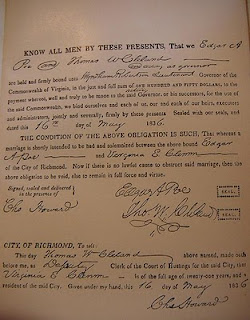 KNOW ALL MEN BY THESE PRESENTS, That we Edgar A
Poe and Thomas W Cleland
are held and firmly bound unto Wyndham Robertson Lieutenant Governor of the
Commonwealth of Virginia, in the just and full sum of ONE HUNDRED AND FIFTY DOLLARS, to the
payment whereof, well and truly to be made to the said Governor, or his successors, for the use of
the said Commonwealth, we bind ourselves and each of us, our and each of our heirs, executors
and administrators, jointly and severally, firmly by these presents. Sealed with our seals, and
dated this 16th day of May 1836.
THE CONDITION OF THE ABOVE OBLIGATION IS SUCH, That whereas a
marriage is shortly intended to be had and solemnized between the above bound Edgar
A Poe and Virginia E. Clemm of the
City of Richmond. Now if there is no lawful cause to obstruct said marriage, then the
above obligation to be void, else to remain in full force and virtue.
Signed, sealed and delivered
in the presence of
Edgar A Poe SEAL.
Cha Howard
Tho W Cleland SEAL.
CITY OF RICHMOND, To wit:
This day Thomas W Cleland above named, made oath
before me, as Deputy Clerk of the Court of Hustings for the said City, that
Virginia E. Clemm is of the full age of twenty-one years, and a
resident of the said City. Given under my hand, this 16 day of May 1836
Cha Howard